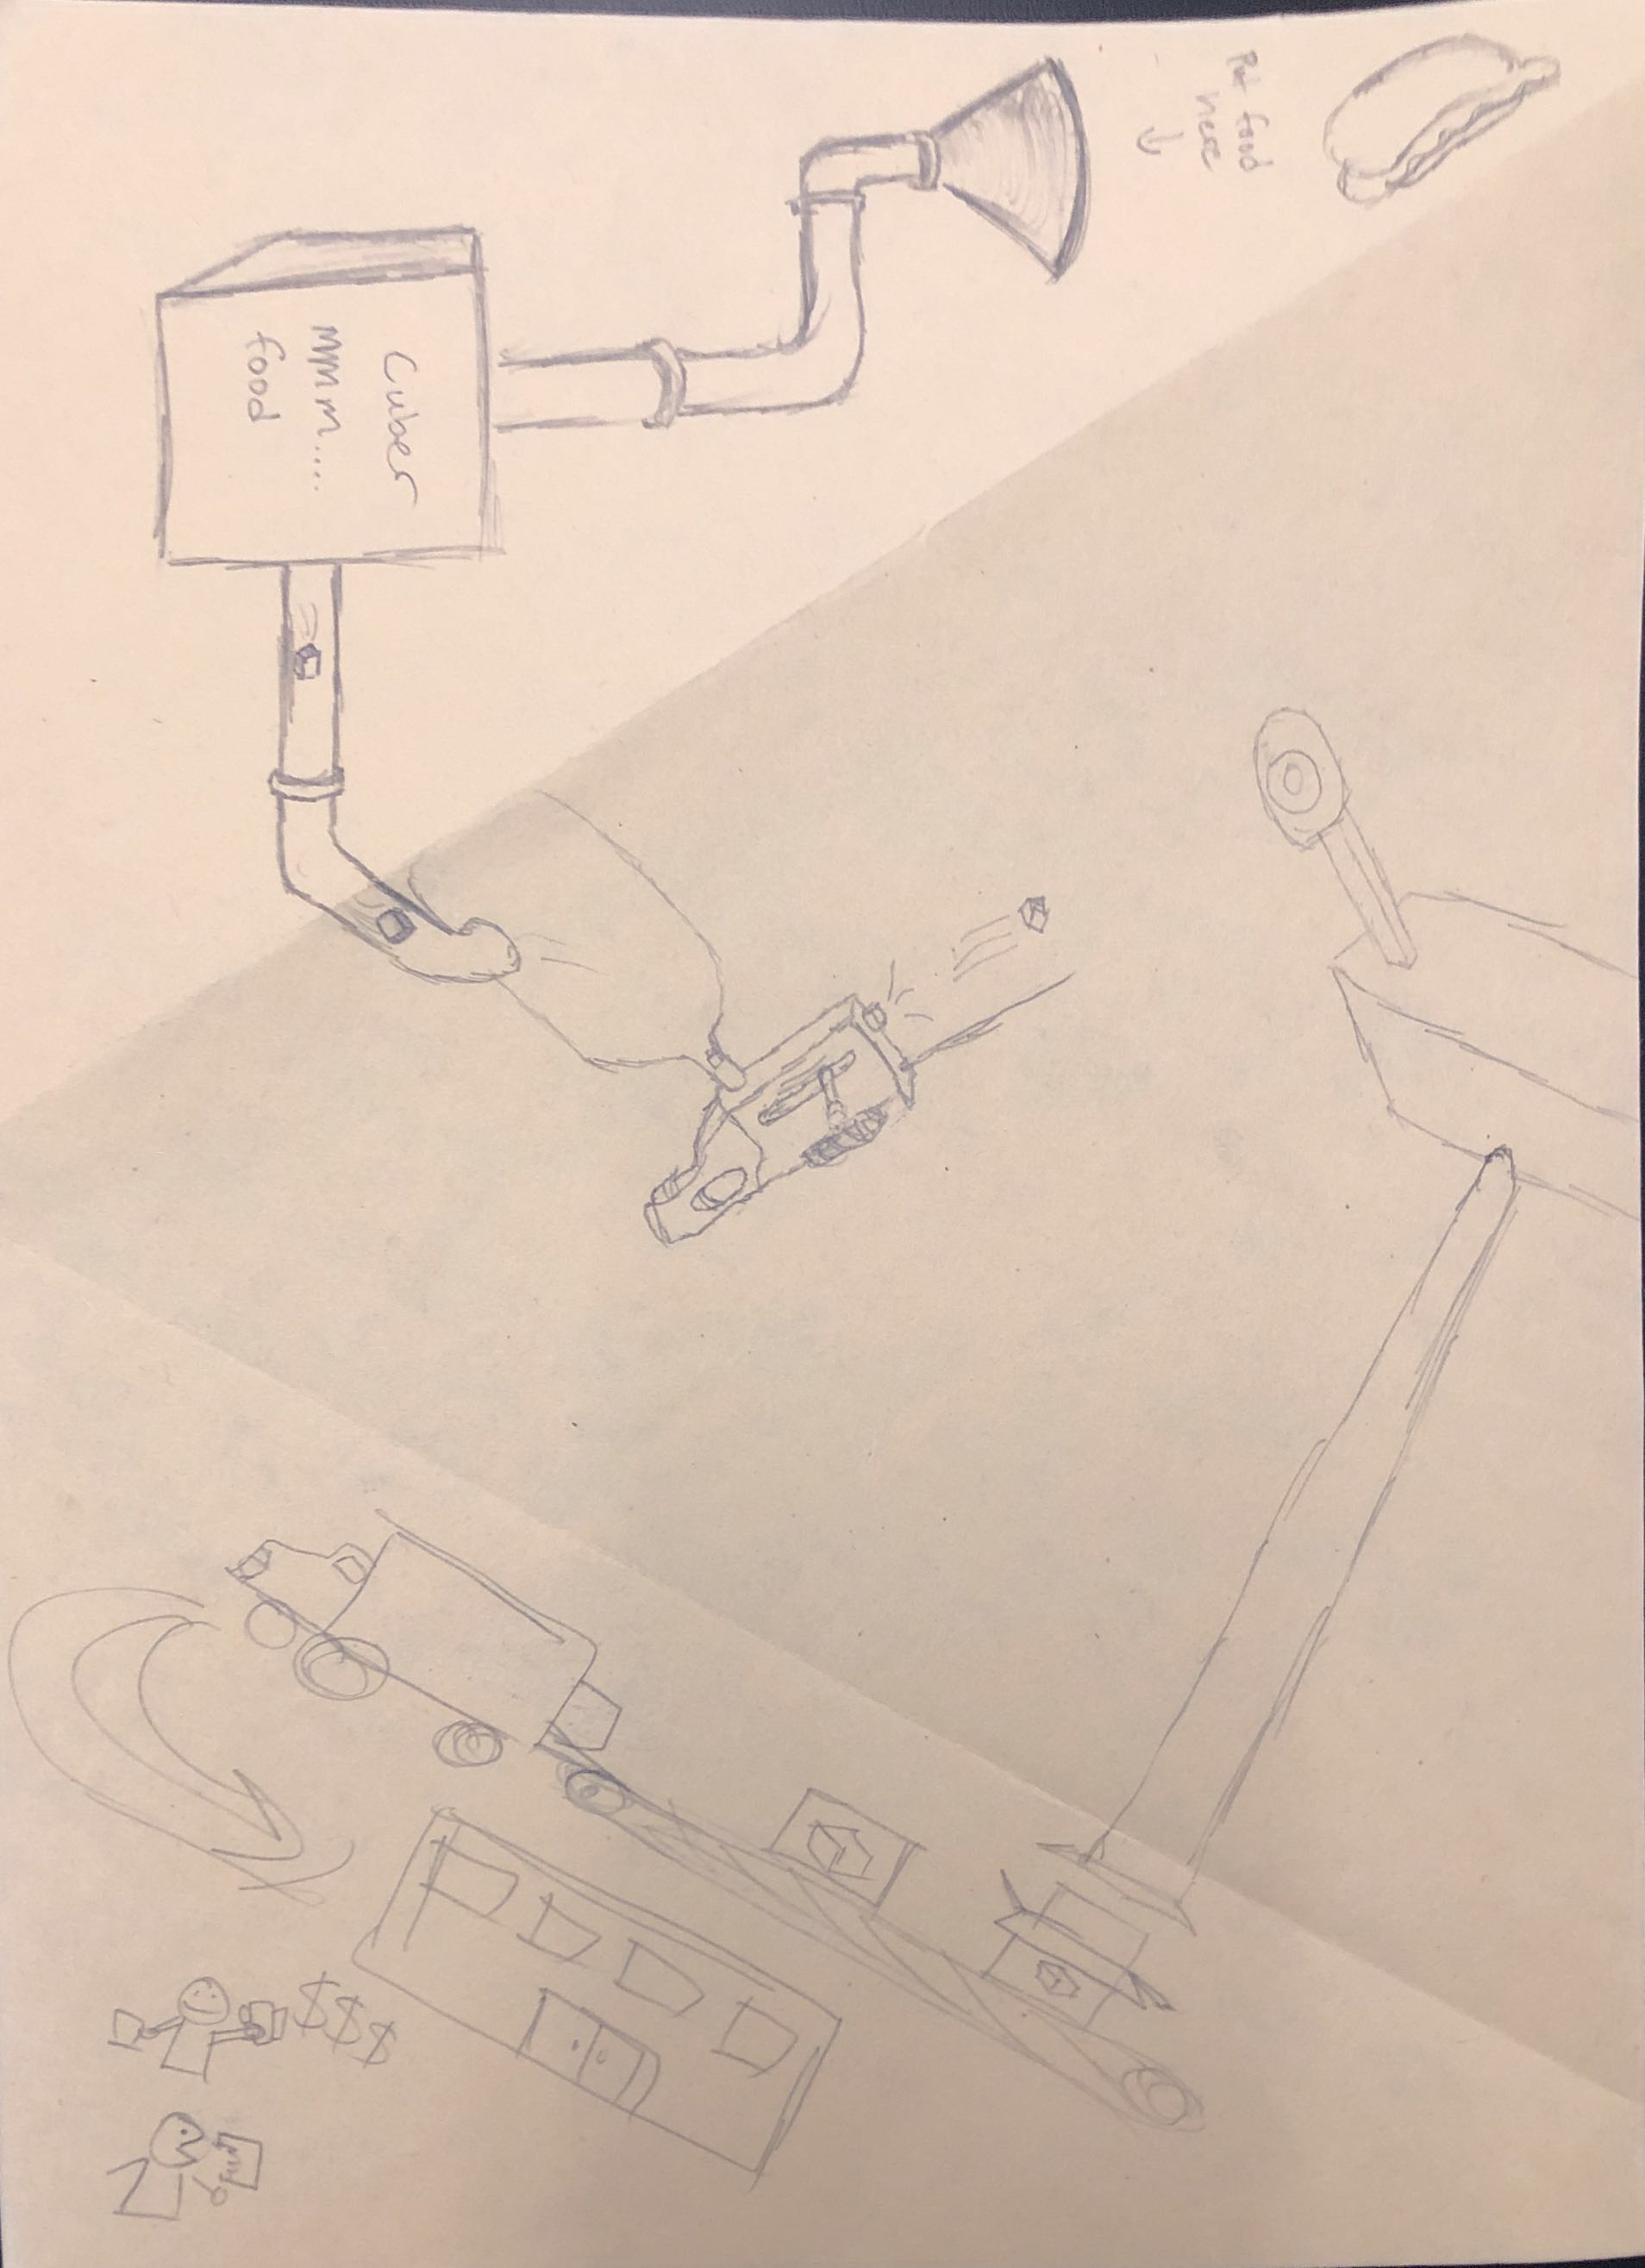 Put food
here
Cuber
mmm....
food
$$$